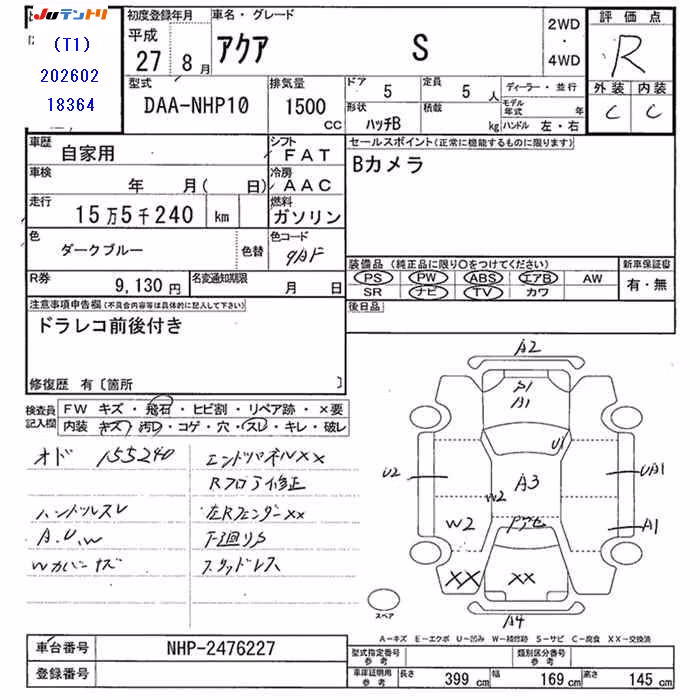 Juテントリ
(T1)
202602
18364
初度登録年月
平成
27 8月
車名・グレード
アクア S
2WD
・
4WD
評価点
R
外装 内装
C C
型式
DAA-NHP10
排気量
1500 cc
ドア 5
定員 5 人
形状 ハッチB
積載 kg
ディーラー・並行
モデル年式 年
ハンドル 左・右
車歴 自家用
シフト FAT
車検 年 月( 日)
冷房 AAC
走行 15万5千240 km
燃料 ガソリン
色 ダークブルー 色替
色コード
R券 9,130円
名変通知期限 月 日
セールスポイント(正常に機能するものに限ります)
Bカメラ
装備品(純正品に限り〇をつけてください)
PS PW ABS エアB AW
SR ナビ TV カワ
新車保証書
有・無
後日品
注意事項申告欄(不具合内容等は具体的に記入して下さい)
ドラレコ前後付き
修復歴 有〔箇所 〕
検査員記入欄
FW キズ・飛石・ヒビ割・リペア跡・×要
内装 キズ・汚れ・コゲ・穴・スレ・キレ・破レ
オド 155240
エンドパネル××
Rフロア修正
ハンドルスレ
左Rフェンダー××
A.U.W
下廻りS
Wカバーキズ
スタッドレス
A2
A1
U1
U2
A3
UA1
W2
W2
A1
××
××
A4
スペア
A-キズ E-エクボ U-凹み W-補修跡 S-サビ C-腐食 XX-交換済
車台番号 NHP-2476227
登録番号
型式指定番号 参考
類別区分番号 参考
車庫証明用 参考
長さ 399 cm
幅 169 cm
高さ 145 cm